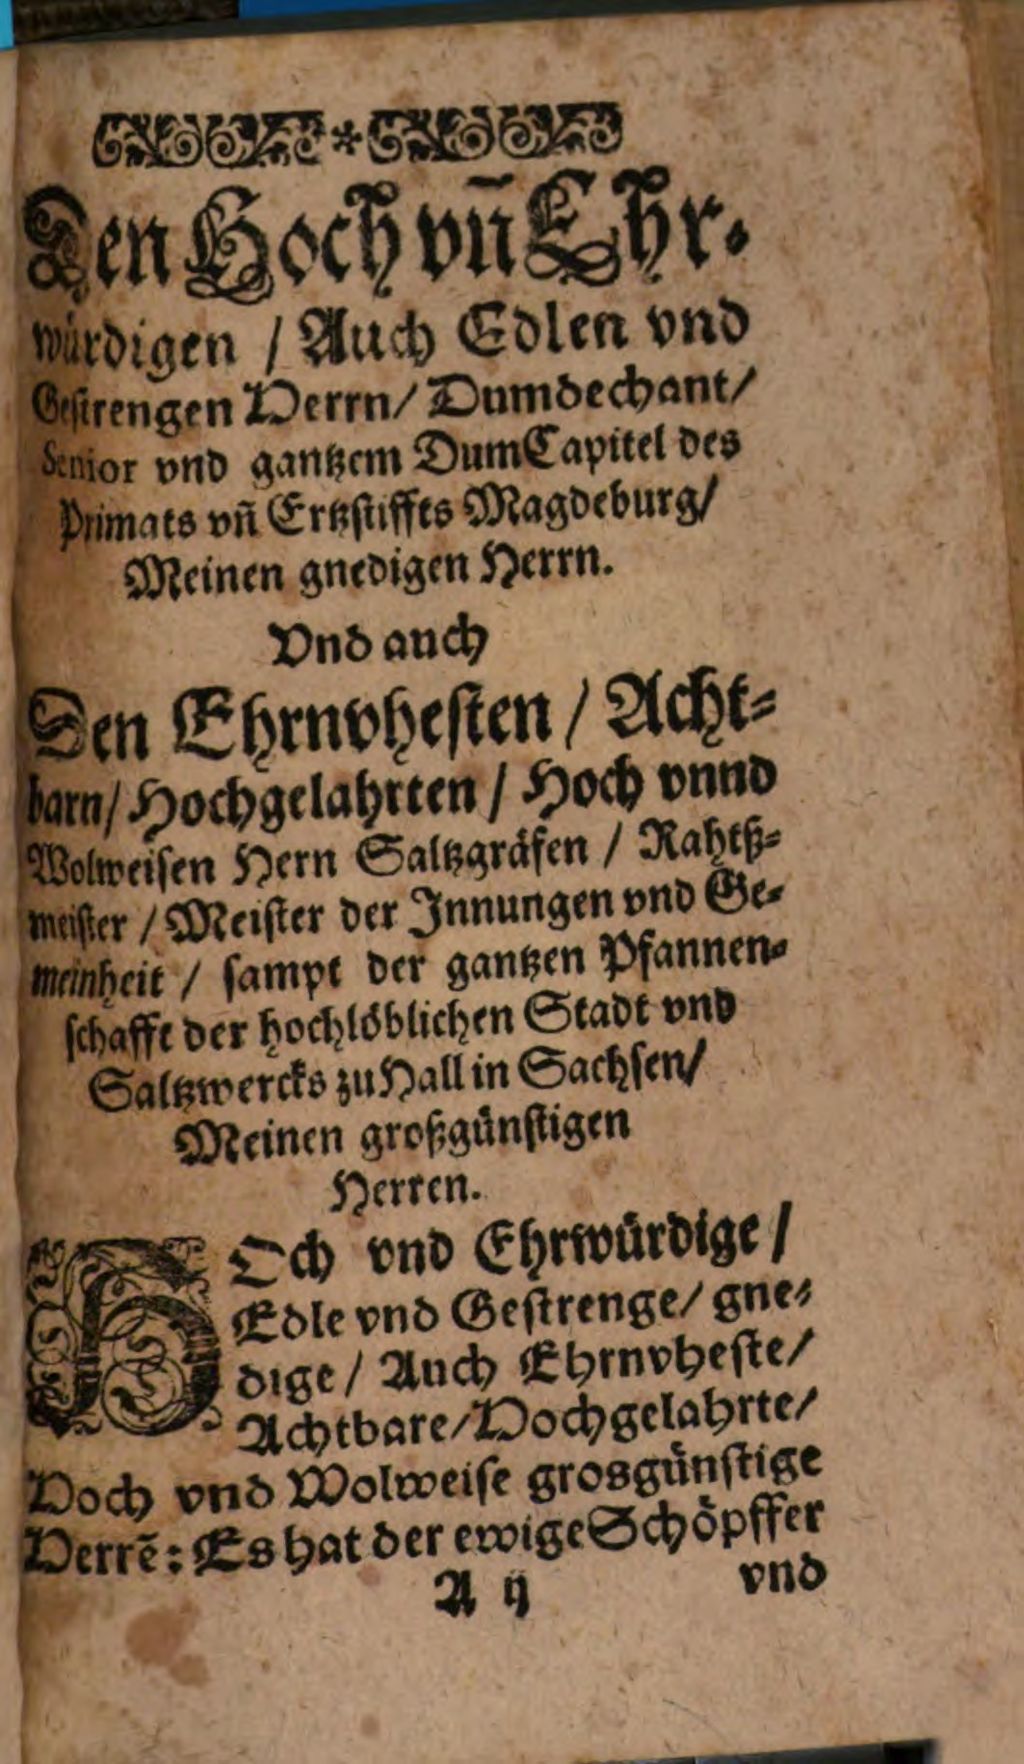 Den Hoch vñ Ehr-
würdigen / Auch Edlen vnd
Gestrengen Herrn/ Dumdechant/
Senior vnd gantzem DumCapitel des
Primats vñ Ertzstiffts Magdeburg/
Meinen gnedigen Herrn.
Vnd auch
Den Ehrnvhesten / Acht-
barn/ Hochgelahrten / Hoch vnnd
Wolweisen Hern Saltzgräfen / Rahtß-
meister / Meister der Innungen vnd Ge-
meinheit / sampt der gantzen Pfannen-
schafft der hochlöblichen Stadt vnd
Saltzwercks zu Hall in Sachsen/
Meinen großgünstigen
Herren.
HOch vnd Ehrwürdige /
Edle vnd Gestrenge/ gne-
dige / Auch Ehrnvheste/
Achtbare/Hochgelahrte/
Hoch vnd Wolweise grosgünstige
Herrẽ: Es hat der ewige Schöpffer
A ij vnd